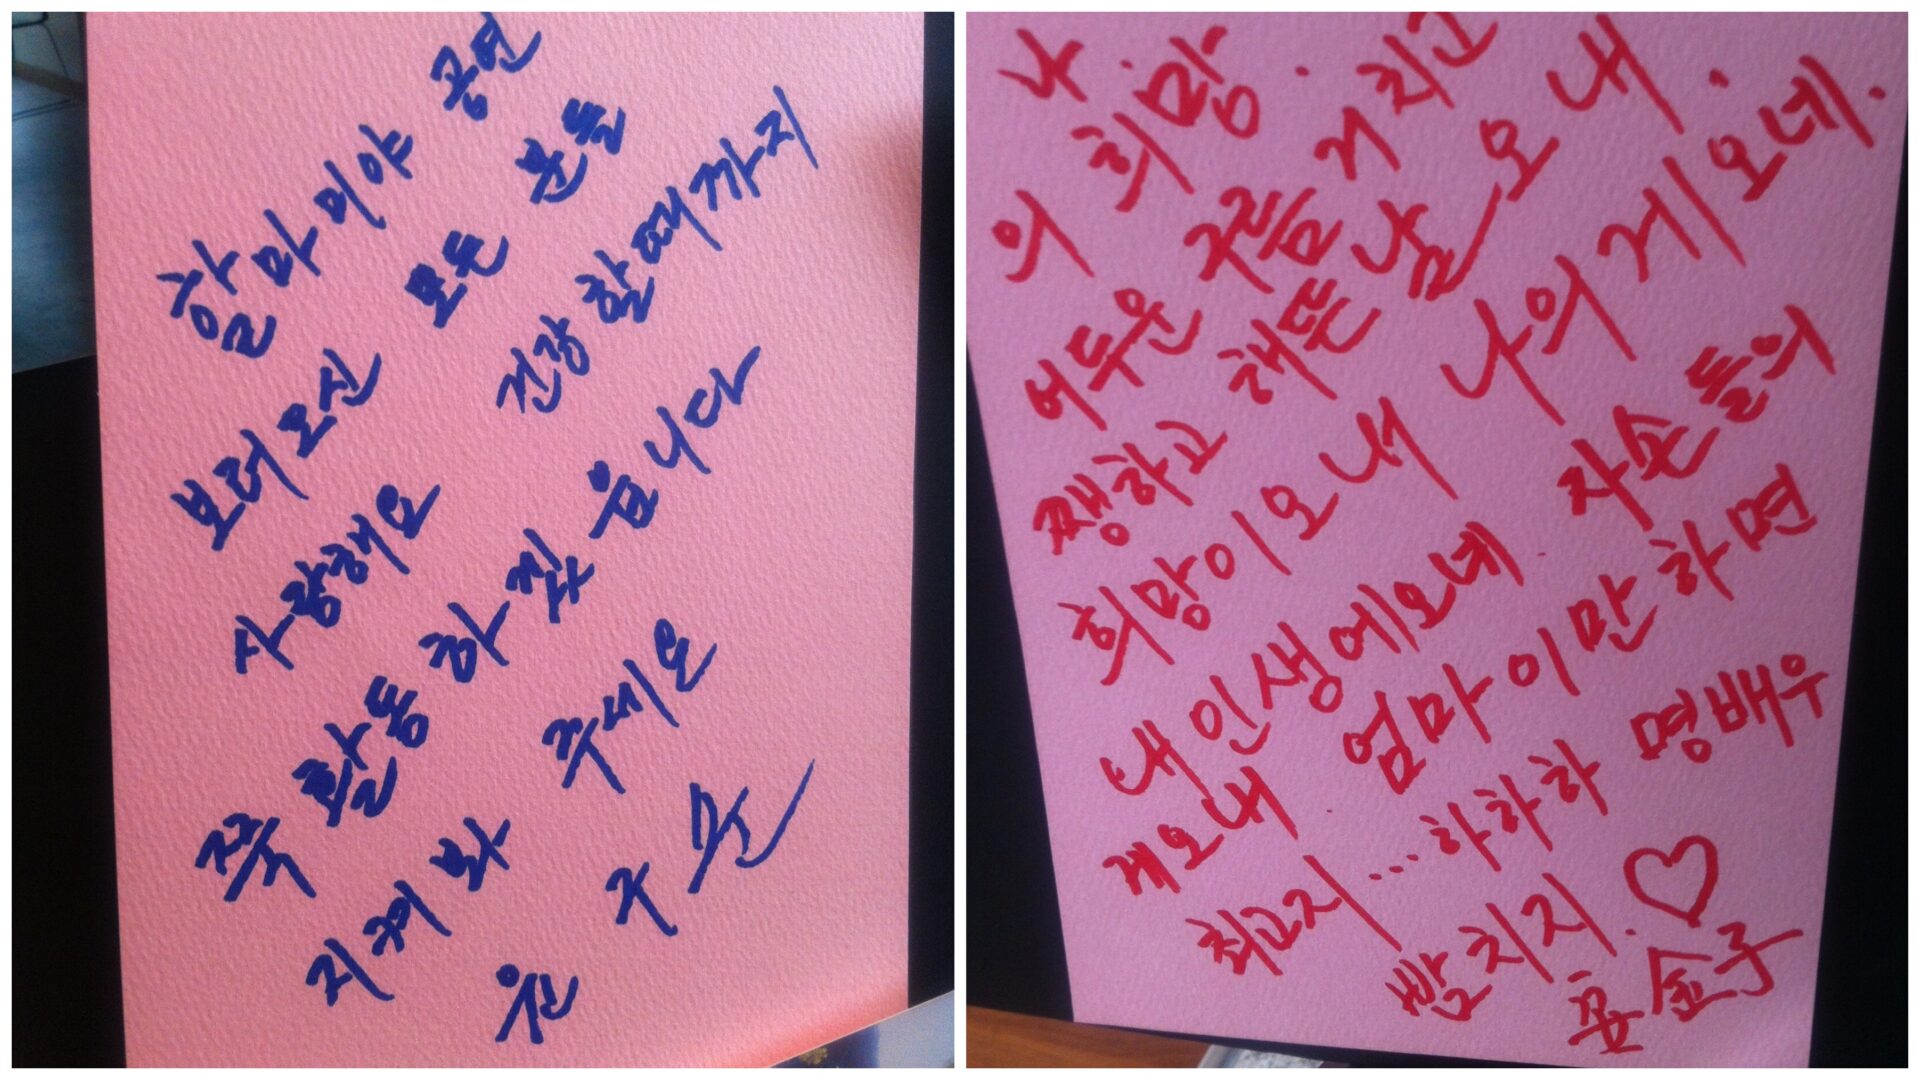 할마미야 공연
보러오신 모든 분들
사랑해요 건강할때까지
쭉 활동하겠읍니다
지켜봐 주세요
윤 주순
나.
의 희망.
어두운 구름 거치고
쨍하고 해뜬날 오내.
희망이오내 나의게 오네.
내인생에오네. 자손들의
게오내. 엄마이만하면
최고지... 하하하 명배우
발치지. ♡
金子